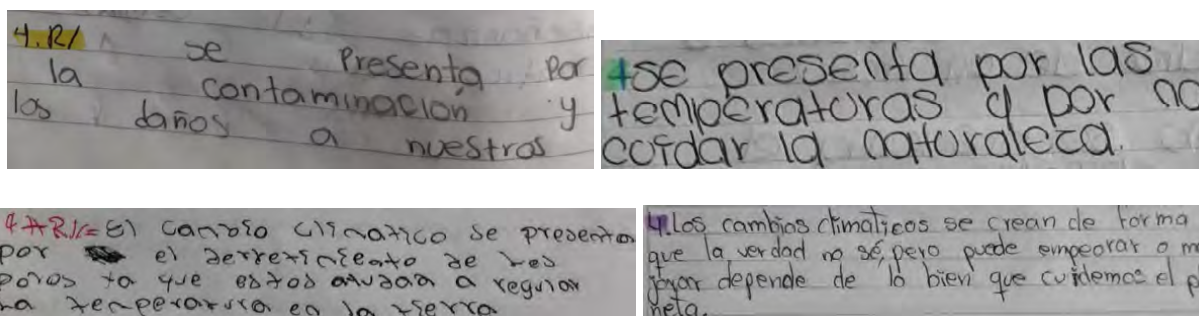 4.R/ se Presenta Por
la contaminación y
los daños a nuestros
4se presenta por las
temperaturas y por no
coidar la natoraleza.
4+R//= El canbio clinatico se presenta
por el derretinieato de les
polos ya que estos ayudaa a regular
la temperatura en la tierra
4.Los cambios climaticos se crean de forma
que la verdad no sé, pero puede empeorar o me
jorar depende de lo bien que cuidemos el p
neta.